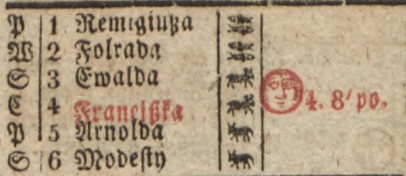 P 1 Remigiußa
W 2 Folrada
S 3 Ewalda
C 4 Francißka 4. 8' po.
P 5 Arnolda
S 6 Modesty